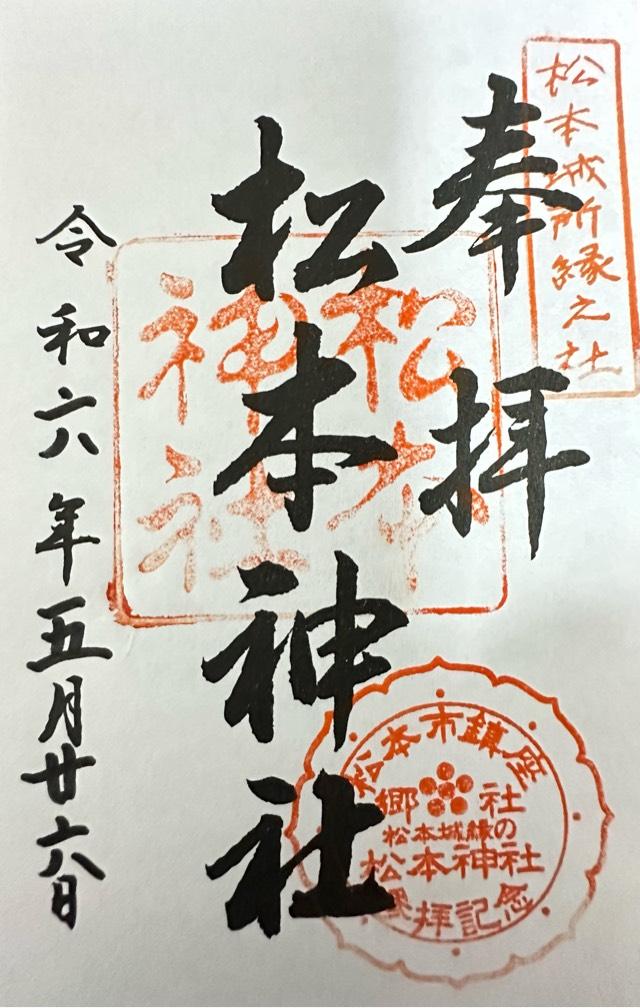 松本城所縁之社
奉拝
松本神社
松本
神社
令和六年五月廿六日
松本市鎮座
郷社
松本城縁の
松本神社
参拝記念